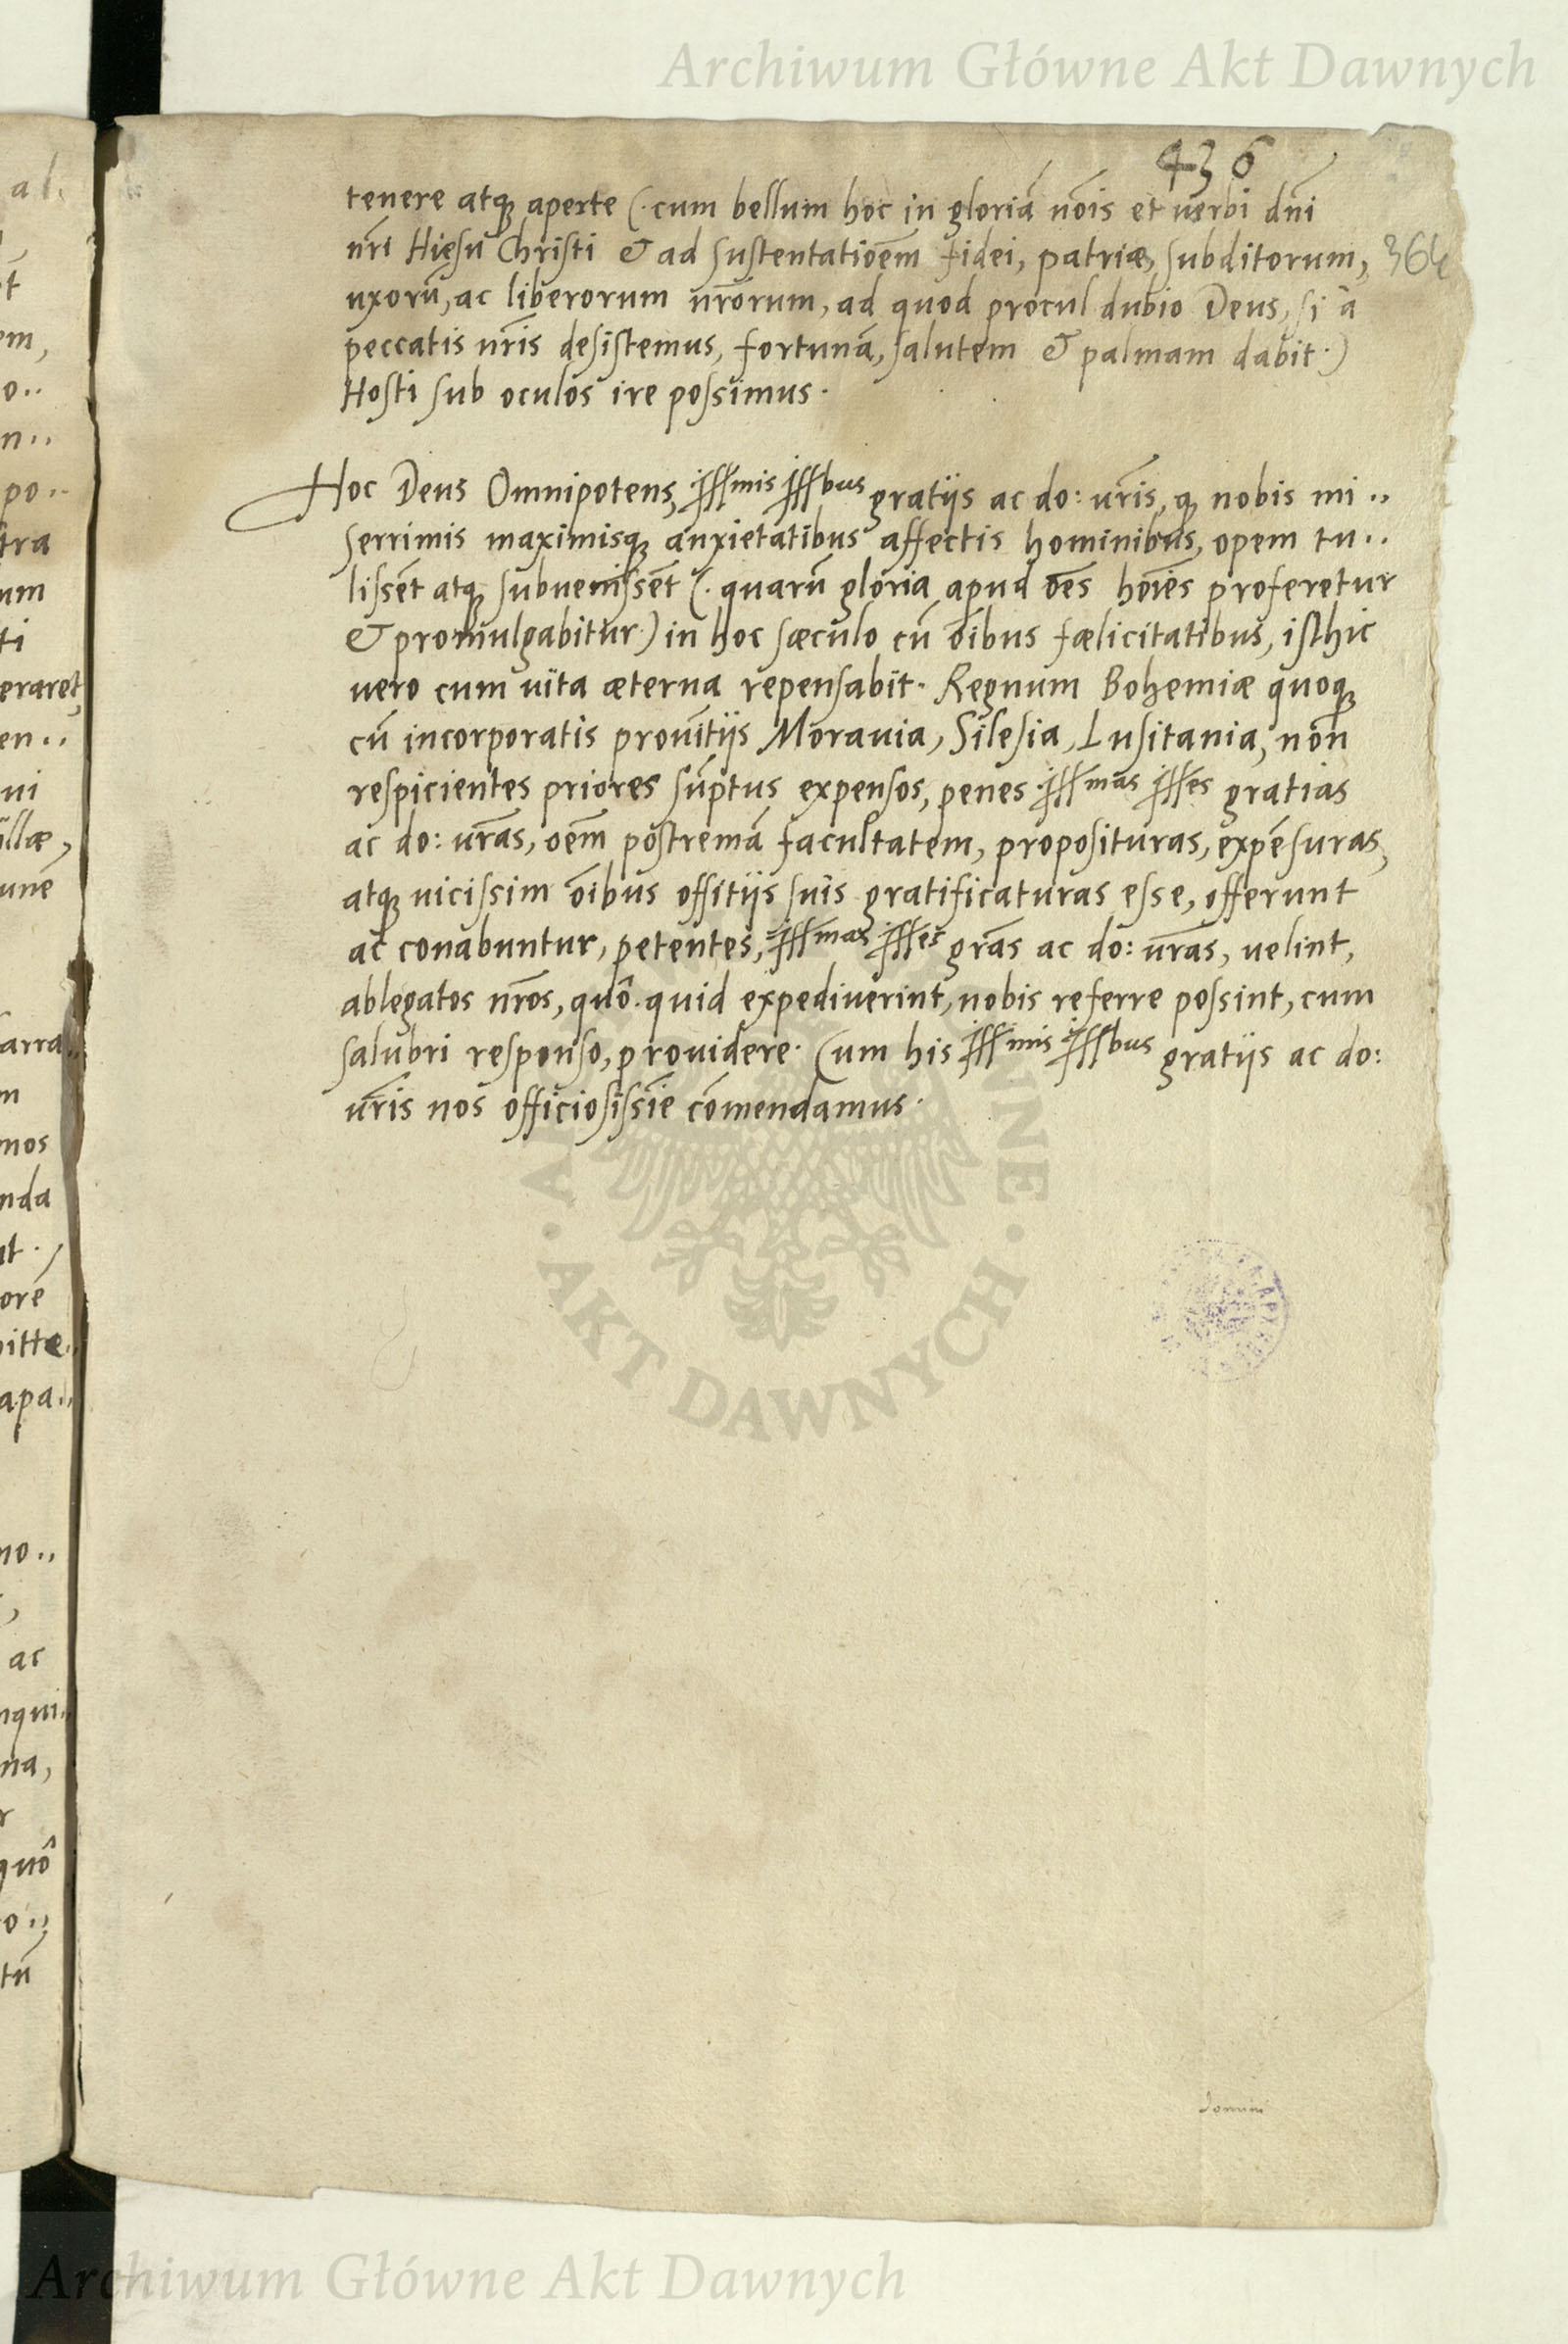 Archiwum Główne Akt Dawnych
436
tenere atq; aperte (. cum bellum hoc in gloriā nōis et verbi dn̄i
nr̄i Hiesu Christi & ad sustentatiōem fidei, patriæ, subditorum,
364
uxorū, ac liberorum nr̄orum, ad quod procul dubio Deus, si à
peccatis nr̄is desistemus, fortunā, salutem & palmam dabit .)
Hosti sub oculos ire possimus.
Hoc Deus Omnipotens, jllmis jllbus gratijs ac do: vr̄is, q; nobis mi..
serrimis maximisq; anxietatibus affectis hominibus, opem tu..
lissēt atq; subvenissēt (. quarū gloria apud ōes hōies proferetur
& promulgabitur .) in hoc sæculo cū ōibus fælicitatibus, isthic
vero cum vita æterna repensabit. Regnum Bohemiæ quoq;
cū incorporatis provītijs Moravia, Silesia, Lusitania, non
respicientes priores sūptus expensos, penes jllmas jlles gratias
ac do: vr̄as, oēm postremā facultatem, proposituras, expēsuras,
atq; vicissim ōibus offitijs suis gratificaturas esse, offerunt
ac conabuntur, petentes, jllmas jlles grās ac do: vr̄as, velint,
ablegatos nr̄os, quô quid expediverint, nobis referre possint, cum
salubri responso, providere. Cum his jllmis jllbus gratijs ac do:
vr̄is nos officiosissīe cōmendamus.
AKT DAWNYCH
domini
Archiwum Główne Akt Dawnych